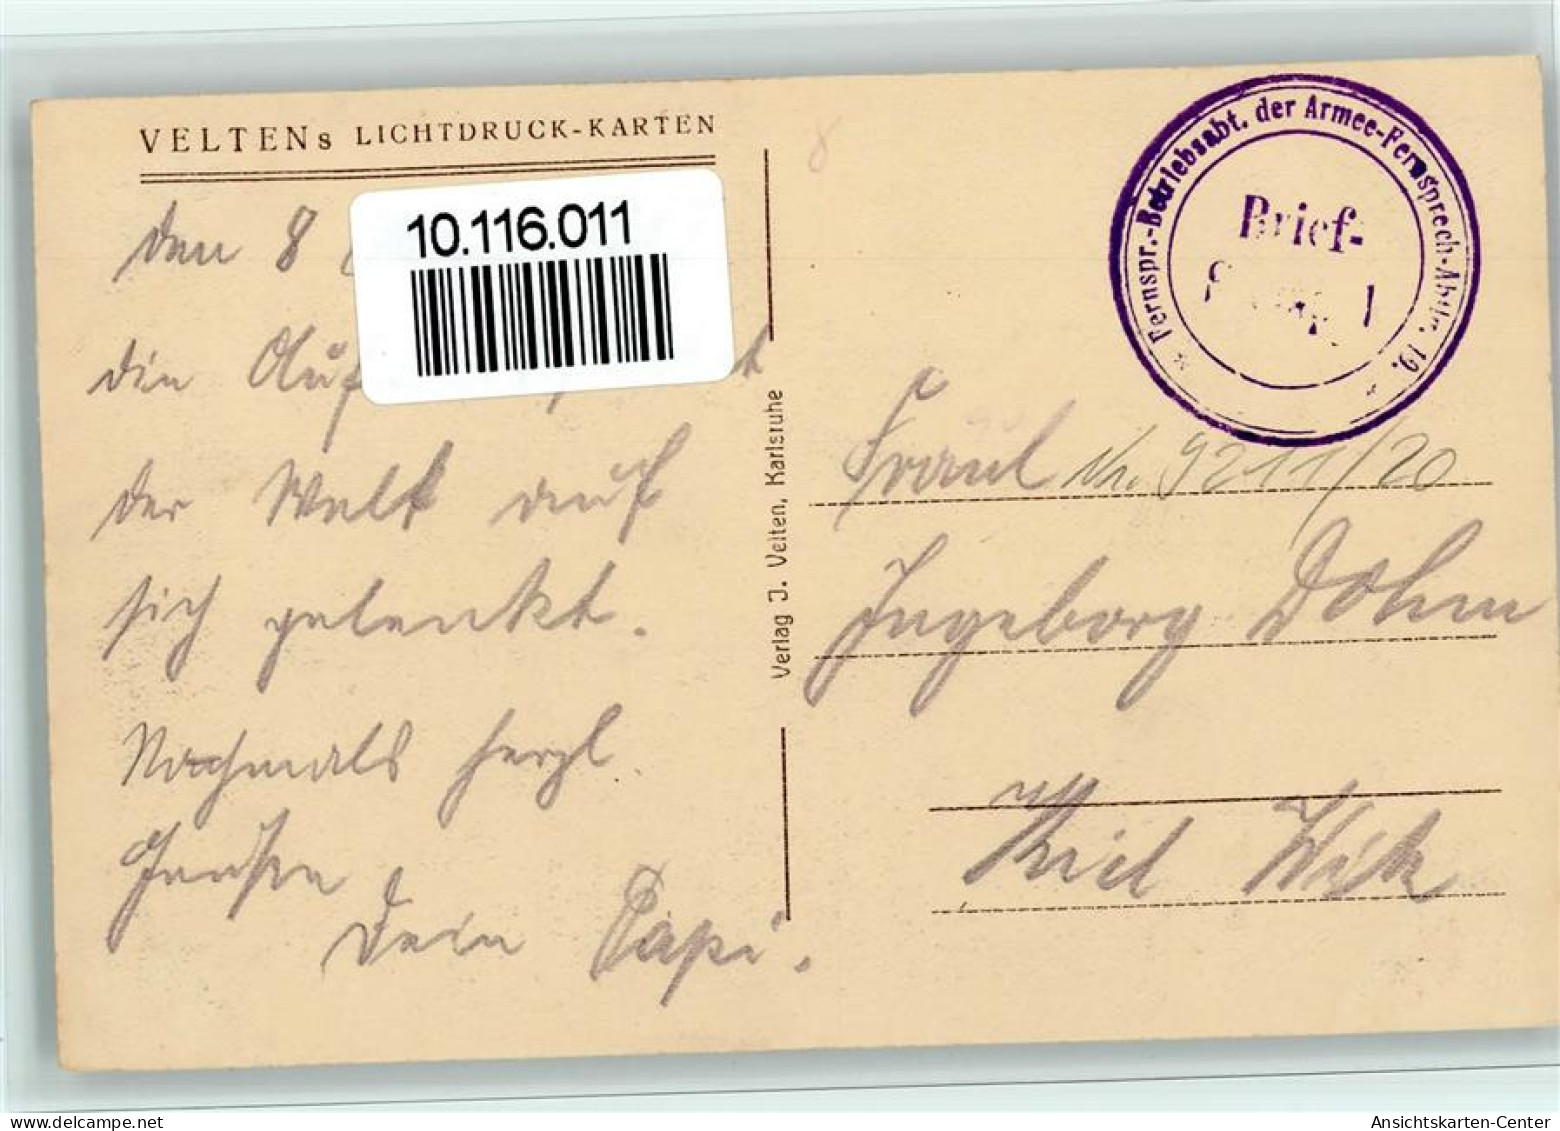 VELTENs LICHTDRUCK-KARTEN
10.116.011
den 8
die Auf
der Welt auf
sich gelenkt.
Nochmals herzl.
Grüße
Dein Papi.
Verlag J. Velten, Karlsruhe
Fernspr.-Betriebsabt. der Armee-Fernsprech-Abtlg. 19.
Brief-
Fräul Nr. 9211/20
Ingeborg Dohm
Kiel Wik
delcampe.net
Ansichtskarten-Center